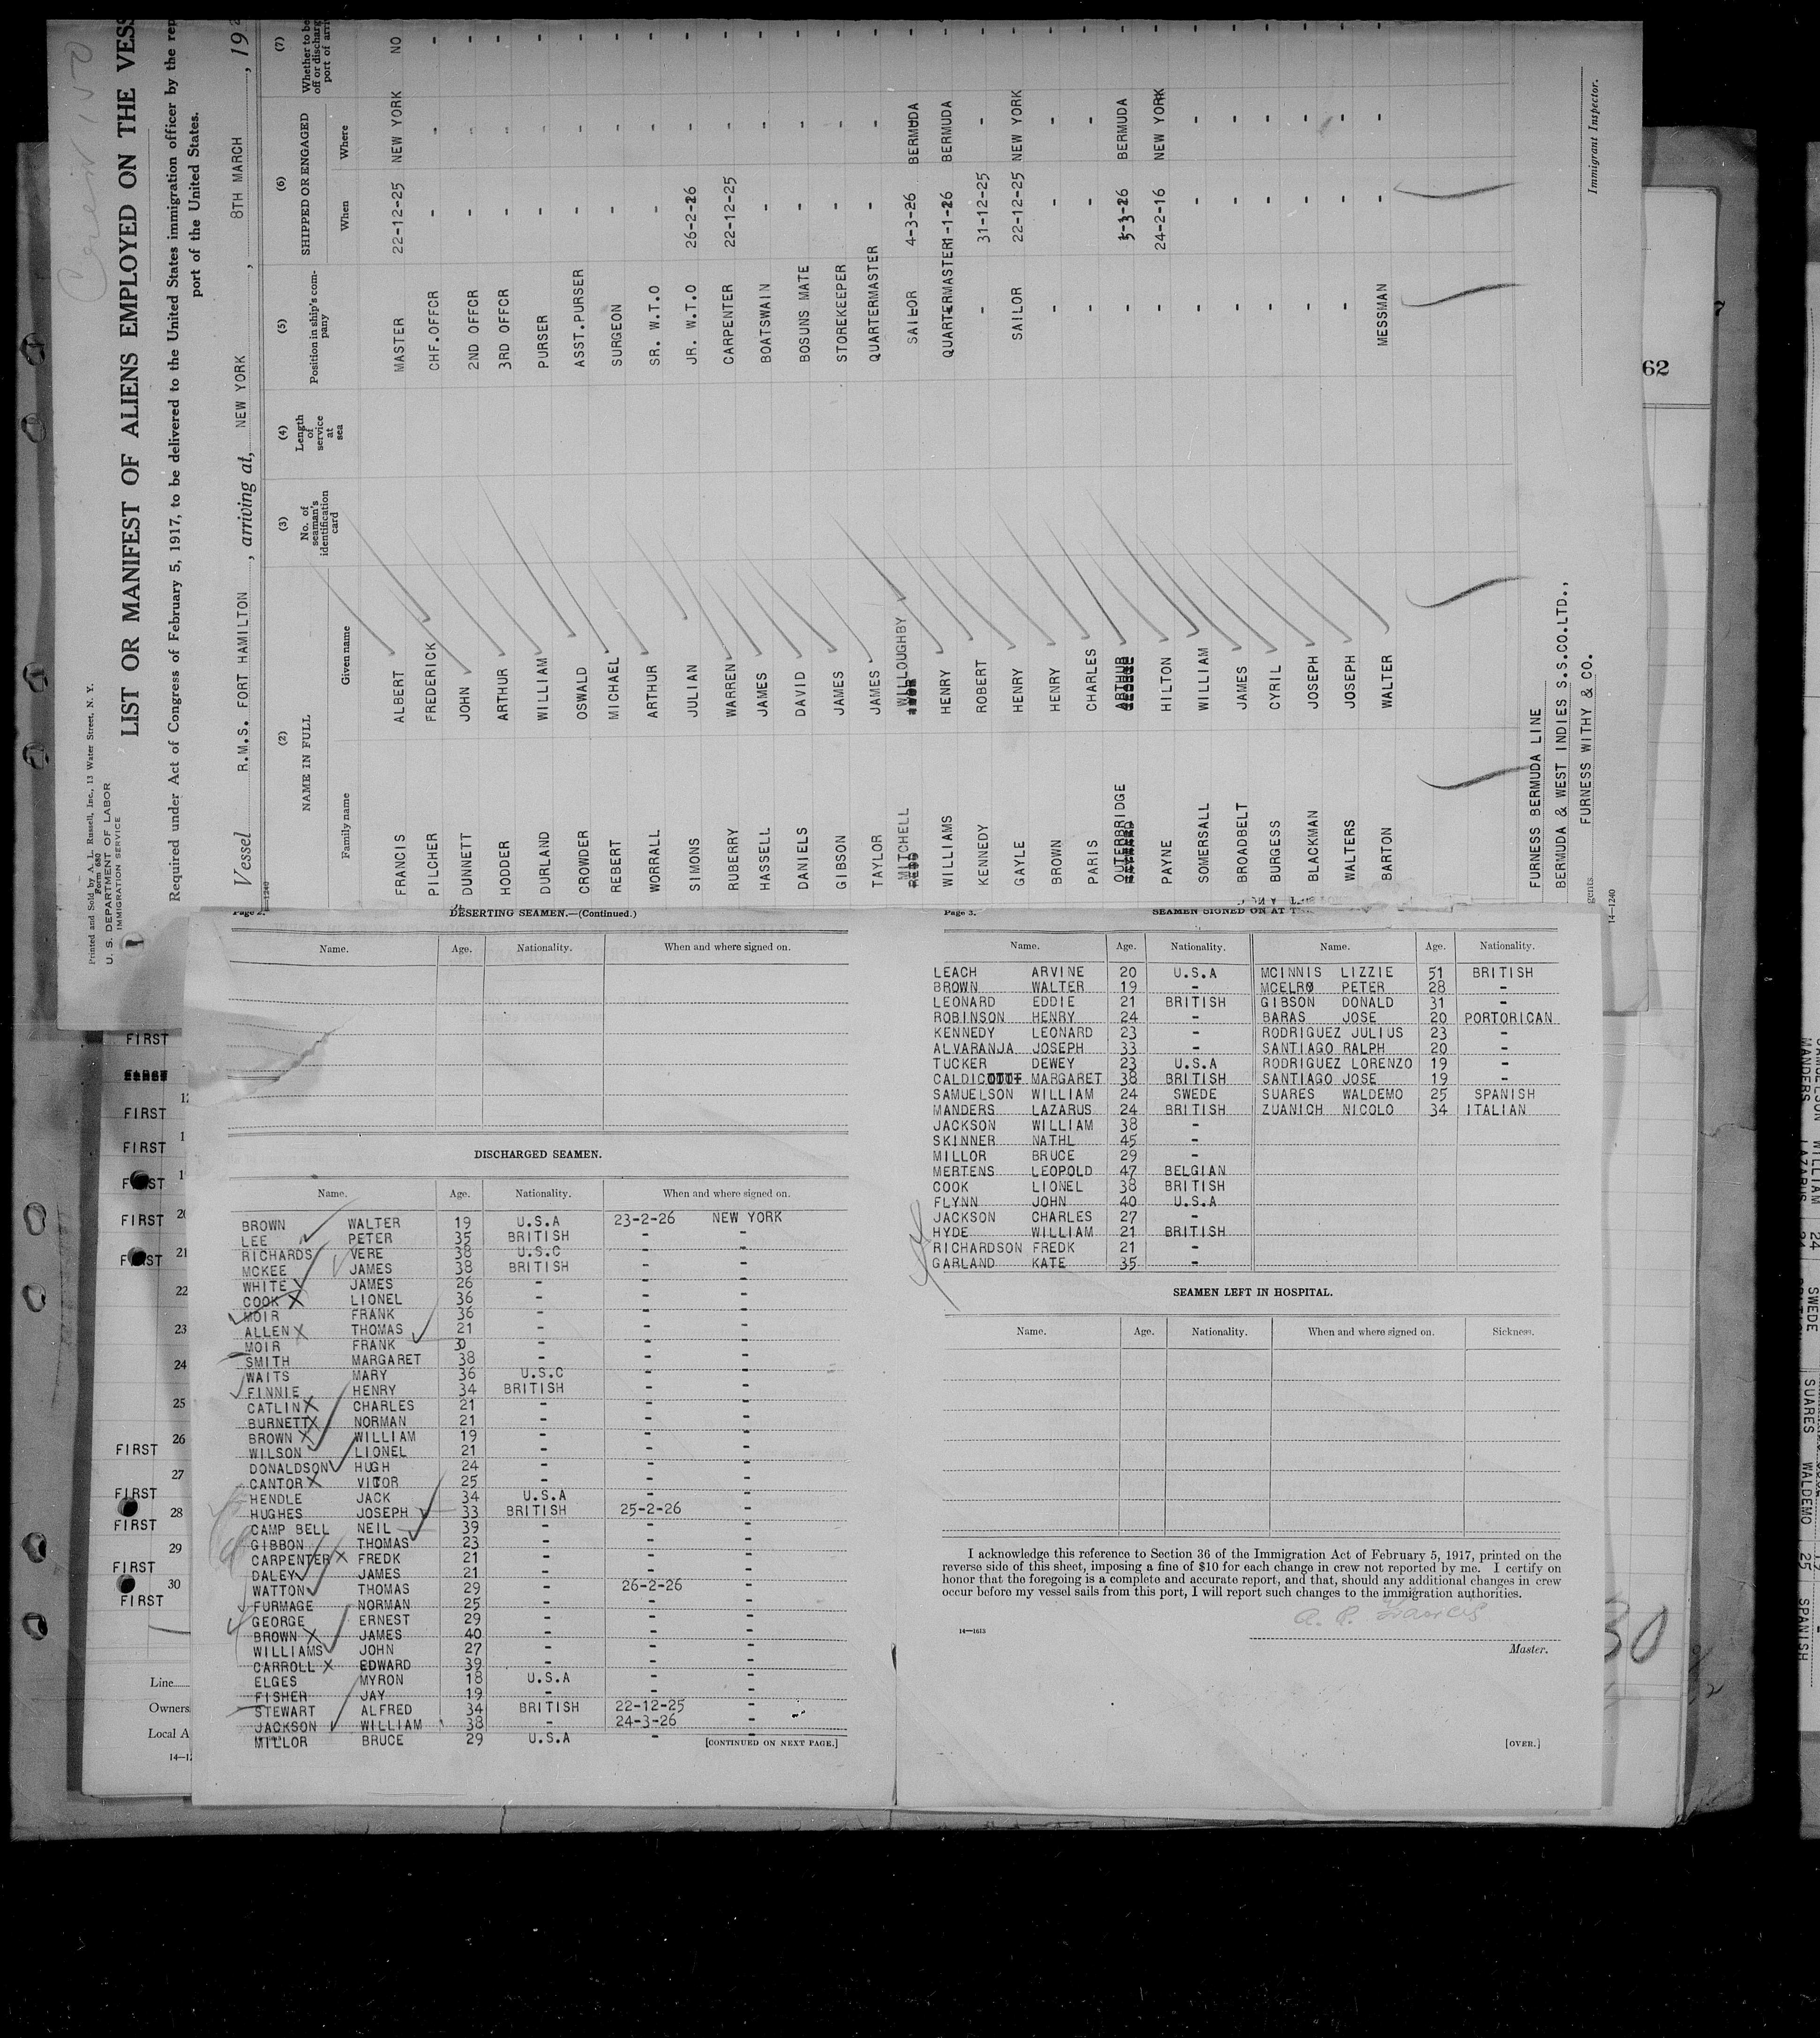 Printed and Sold by A. L. Russell, Inc., 13 Water Street, N. Y.
Form 680
U. S. DEPARTMENT OF LABOR
IMMIGRATION SERVICE
LIST OR MANIFEST OF ALIENS EMPLOYED ON THE VESS
Required under Act of Congress of February 5, 1917, to be delivered to the United States immigration officer by the rep
port of the United States.
Vessel R.M.S. FORT HAMILTON, arriving at, NEW YORK, 8TH MARCH, 192
(2) (3) (4) (5) (6) (7)
NAME IN FULL No. of seaman's identification card Length of service at sea Position in ship's company SHIPPED OR ENGAGED Whether to be off or discharg port of arri
Family name Given name When Where
FRANCIS ALBERT MASTER 22-12-25 NEW YORK NO
PILCHER FREDERICK CHF.OFFCR - - -
DUNNETT JOHN 2ND OFFCR - - -
HODDER ARTHUR 3RD OFFCR - - -
DURLAND WILLIAM PURSER - - -
CROWDER OSWALD ASST.PURSER - - -
REBERT MICHAEL SURGEON - - -
WORRALL ARTHUR SR. W.T.O - - -
SIMONS JULIAN JR. W.T.O 26-2-26 - -
RUBERRY WARREN CARPENTER 22-12-25 - -
HASSELL JAMES BOATSWAIN - - -
DANIELS DAVID BOSUNS MATE - - -
GIBSON JAMES STOREKEEPER - - -
TAYLOR JAMES QUARTERMASTER - - -
MITCHELL WILLOUGHBY SAILOR 4-3-26 BERMUDA -
WILLIAMS HENRY QUARTERMASTER 1-1-26 BERMUDA -
KENNEDY ROBERT - 31-12-25 - -
GAYLE HENRY SAILOR 22-12-25 NEW YORK -
BROWN HENRY - - - -
PARIS CHARLES - - - -
OUTERBRIDGE ARTHUR - BERMUDA -
PAYNE HILTON - 24-2-16 NEW YORK -
SOMERSALL WILLIAM - - - -
BROADBELT JAMES - - - -
BURGESS CYRIL - - - -
BLACKMAN JOSEPH - - - -
WALTERS JOSEPH - - - -
BARTON WALTER MESSMAN - - -
FURNESS BERMUDA LINE
BERMUDA & WEST INDIES S.S.CO.LTD.,
gents FURNESS WITHY & CO.
Immigrant Inspector.
14—1240
62
Page 2. DESERTING SEAMEN.—(Continued.)
Name. Age. Nationality. When and where signed on.
DISCHARGED SEAMEN.
Name. Age. Nationality. When and where signed on.
BROWN WALTER 19 U.S.A 23-2-26 NEW YORK
LEE PETER 35 BRITISH - -
RICHARDS VERE 38 U.S.C - -
MCKEE JAMES 38 BRITISH - -
WHITE JAMES 26 - - -
COOK LIONEL 36 - - -
MOIR FRANK 36 - - -
ALLEN THOMAS 21 - - -
MOIR FRANK - - -
SMITH MARGARET 38 - - -
WAITS MARY 36 U.S.C - -
FINNIE HENRY 34 BRITISH - -
CATLIN CHARLES 21 - - -
BURNETT NORMAN 21 - - -
BROWN WILLIAM 19 - - -
WILSON LIONEL 21 - - -
DONALDSON HUGH 24 - - -
CANTOR VICTOR 25 - - -
HENDLE JACK 34 U.S.A - -
HUGHES JOSEPH 33 BRITISH 25-2-26 -
CAMP BELL NEIL 39 - - -
GIBBON THOMAS 23 - - -
CARPENTER FREDK 21 - - -
DALEY JAMES 21 - - -
WATTON THOMAS 29 - 26-2-26 -
FURMAGE NORMAN 25 - - -
GEORGE ERNEST 29 - - -
BROWN JAMES 40 - - -
WILLIAMS JOHN 27 - - -
CARROLL EDWARD 39 - - -
ELGES MYRON 18 U.S.A - -
FISHER JAY 19 - - -
STEWART ALFRED 34 BRITISH 22-12-25 -
JACKSON WILLIAM 38 - 24-3-26 -
MILLOR BRUCE 29 U.S.A - -
[CONTINUED ON NEXT PAGE.]
Page 3. SEAMEN SIGNED ON AT
Name. Age. Nationality. Name. Age. Nationality.
LEACH ARVINE 20 U.S.A MCINNIS LIZZIE 51 BRITISH
BROWN WALTER 19 - MCELRO PETER 28 -
LEONARD EDDIE 21 BRITISH GIBSON DONALD 31 -
ROBINSON HENRY 24 - BARAS JOSE 20 PORTORICAN
KENNEDY LEONARD 23 - RODRIGUEZ JULIUS 23 -
ALVARANJA JOSEPH 33 - SANTIAGO RALPH 20 -
TUCKER DEWEY 23 U.S.A RODRIGUEZ LORENZO 19 -
MARGARET 38 BRITISH SANTIAGO JOSE 19 -
SAMUELSON WILLIAM 24 SWEDE SUARES WALDEMO 25 SPANISH
MANDERS LAZARUS 24 BRITISH ZUANICH NICOLO 34 ITALIAN
JACKSON WILLIAM 38 -
SKINNER NATHL 45 -
MILLOR BRUCE 29 -
MERTENS LEOPOLD 47 BELGIAN
COOK LIONEL 38 BRITISH
FLYNN JOHN 40 U.S.A
JACKSON CHARLES 27 -
HYDE WILLIAM 21 BRITISH
RICHARDSON FREDK 21 -
GARLAND KATE 35 -
SEAMEN LEFT IN HOSPITAL.
Name. Age. Nationality. When and where signed on. Sickness.
I acknowledge this reference to Section 36 of the Immigration Act of February 5, 1917, printed on the
reverse side of this sheet, imposing a fine of $10 for each change in crew not reported by me. I certify on
honor that the foregoing is a complete and accurate report, and that, should any additional changes in crew
occur before my vessel sails from this port, I will report such changes to the immigration authorities.
A. R. Francis
14—1613
Master.
[OVER.]
FIRST
FIRST
FIRST
FIRST
FIRST 20
FIRST 21
22
23
24
25
FIRST 26
27
FIRST
28
FIRST
29
FIRST
30
FIRST
Line
Owners
Local A
30
MANDERS LAZARUS
SAMUELSON WILLIAM 24 SWEDE
SUARES WALDEMO 25 SPANISH